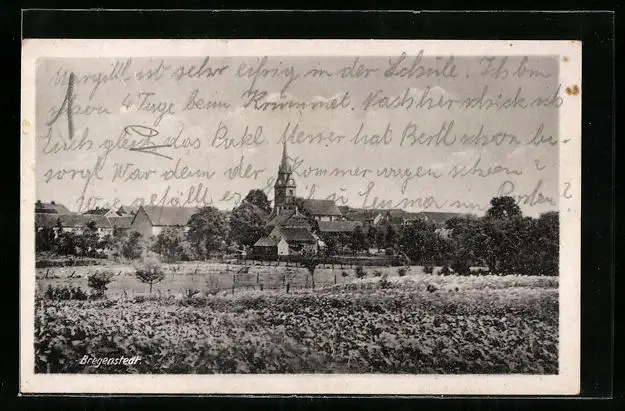 Margill ist sehr eifrig in der Schule. Ich bin
schon 4 Tage beim Krummet. Nachher schick ich
Euch gleich das Pakl Messer hat Bertl schon be-
sorgt. War denn der Kommerwagen schon?
Wie gefällt es
Bregenstedt.